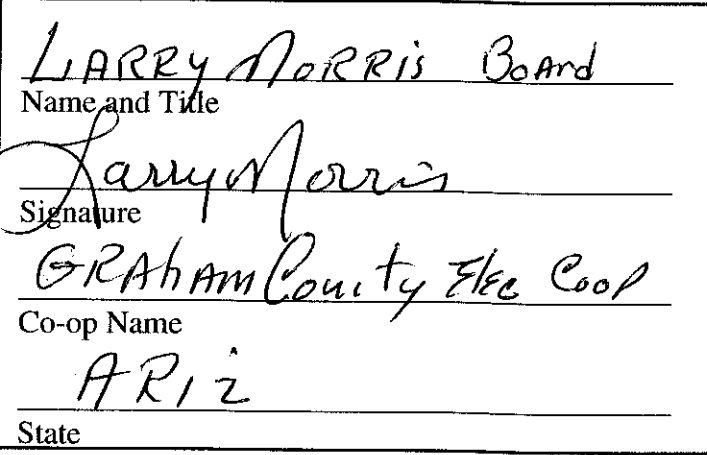 LARRY MORRIS Board
Name and Title
Larry Morris
Signature
GRAhAM County Elec Coop
Co-op Name
ARIZ
State